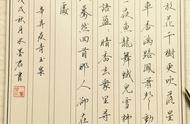 放花千樹更吹落星
車香滿路鳳簫聲動
夜魚龍舞蛾兒雪柳
語盈盈暗香去眾里尋
驀然回首那人卻在
處
辛棄疾青玉案
戊戌秋月水墨君書